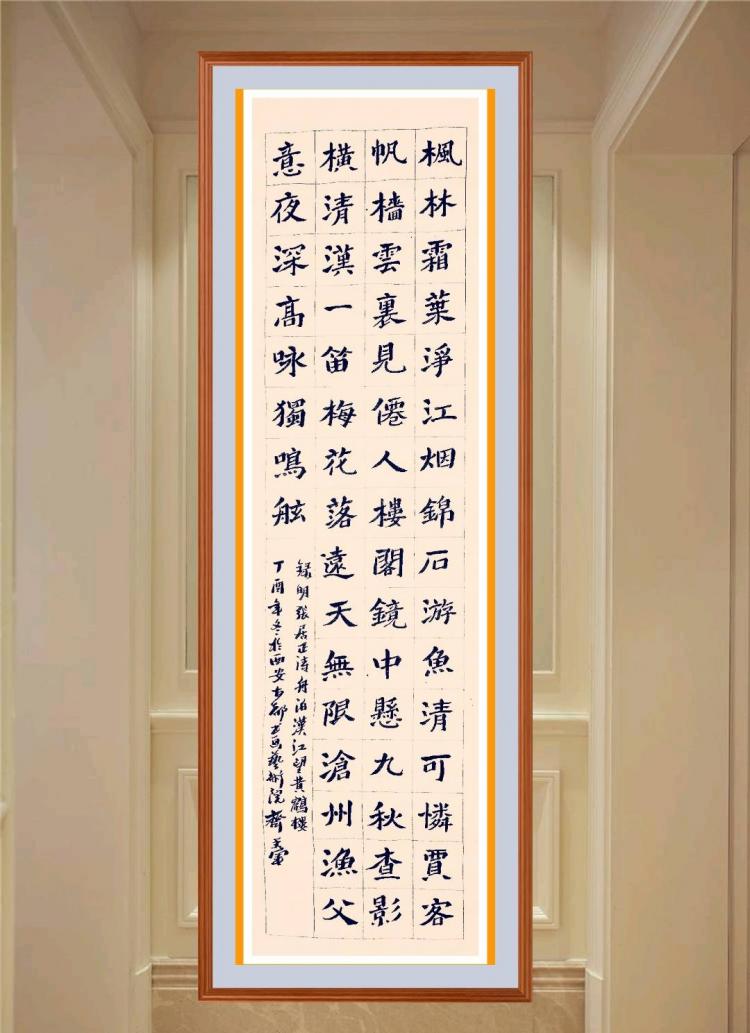 楓林霜葉淨江烟錦石游魚清可憐賈客
帆檣雲裏見僊人樓閣鏡中懸九秋查影
橫清漢一笛梅花落遠天無限滄州漁父
意夜深髙咏獨鳴舷
録明張居正詩舟泊漢江望黄鶴樓
丁酉年冬於西安古都书画藝術院齊